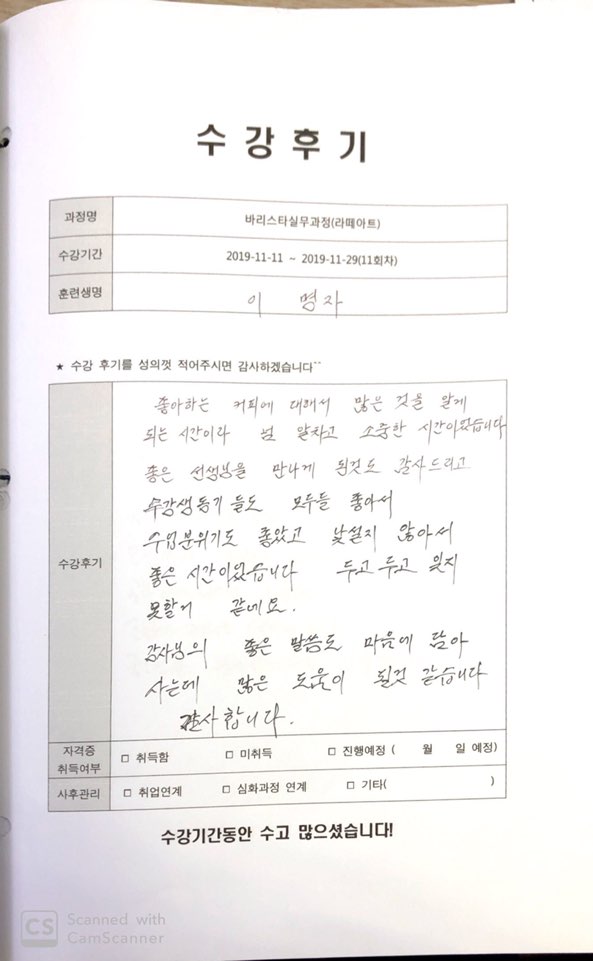 수강후기
과정명 바리스타실무과정(라떼아트)
수강기간 2019-11-11 ~ 2019-11-29(11회차)
훈련생명 이 명자
★ 수강 후기를 성의껏 적어주시면 감사하겠습니다^^
수강후기
좋아하는 커피에 대해서 많은 것을 알게
되는 시간이라 넘 알차고 소중한 시간이었습니다
좋은 선생님을 만나게 된것도 감사드리고
수강생동기 들도 모두들 좋아서
수업분위기도 좋았고 낯설지 않아서
좋은 시간이었습니다 두고 두고 잊지
못할거 같네요.
강사님의 좋은 말씀도 마음에 담아
사는데 많은 도움이 될것 같습니다
감사합니다.
자격증 취득여부 □ 취득함 □ 미취득 □ 진행예정 ( 월 일 예정)
사후관리 □ 취업연계 □ 심화과정 연계 □ 기타( )
수강기간동안 수고 많으셨습니다!
CS Scanned with
CamScanner